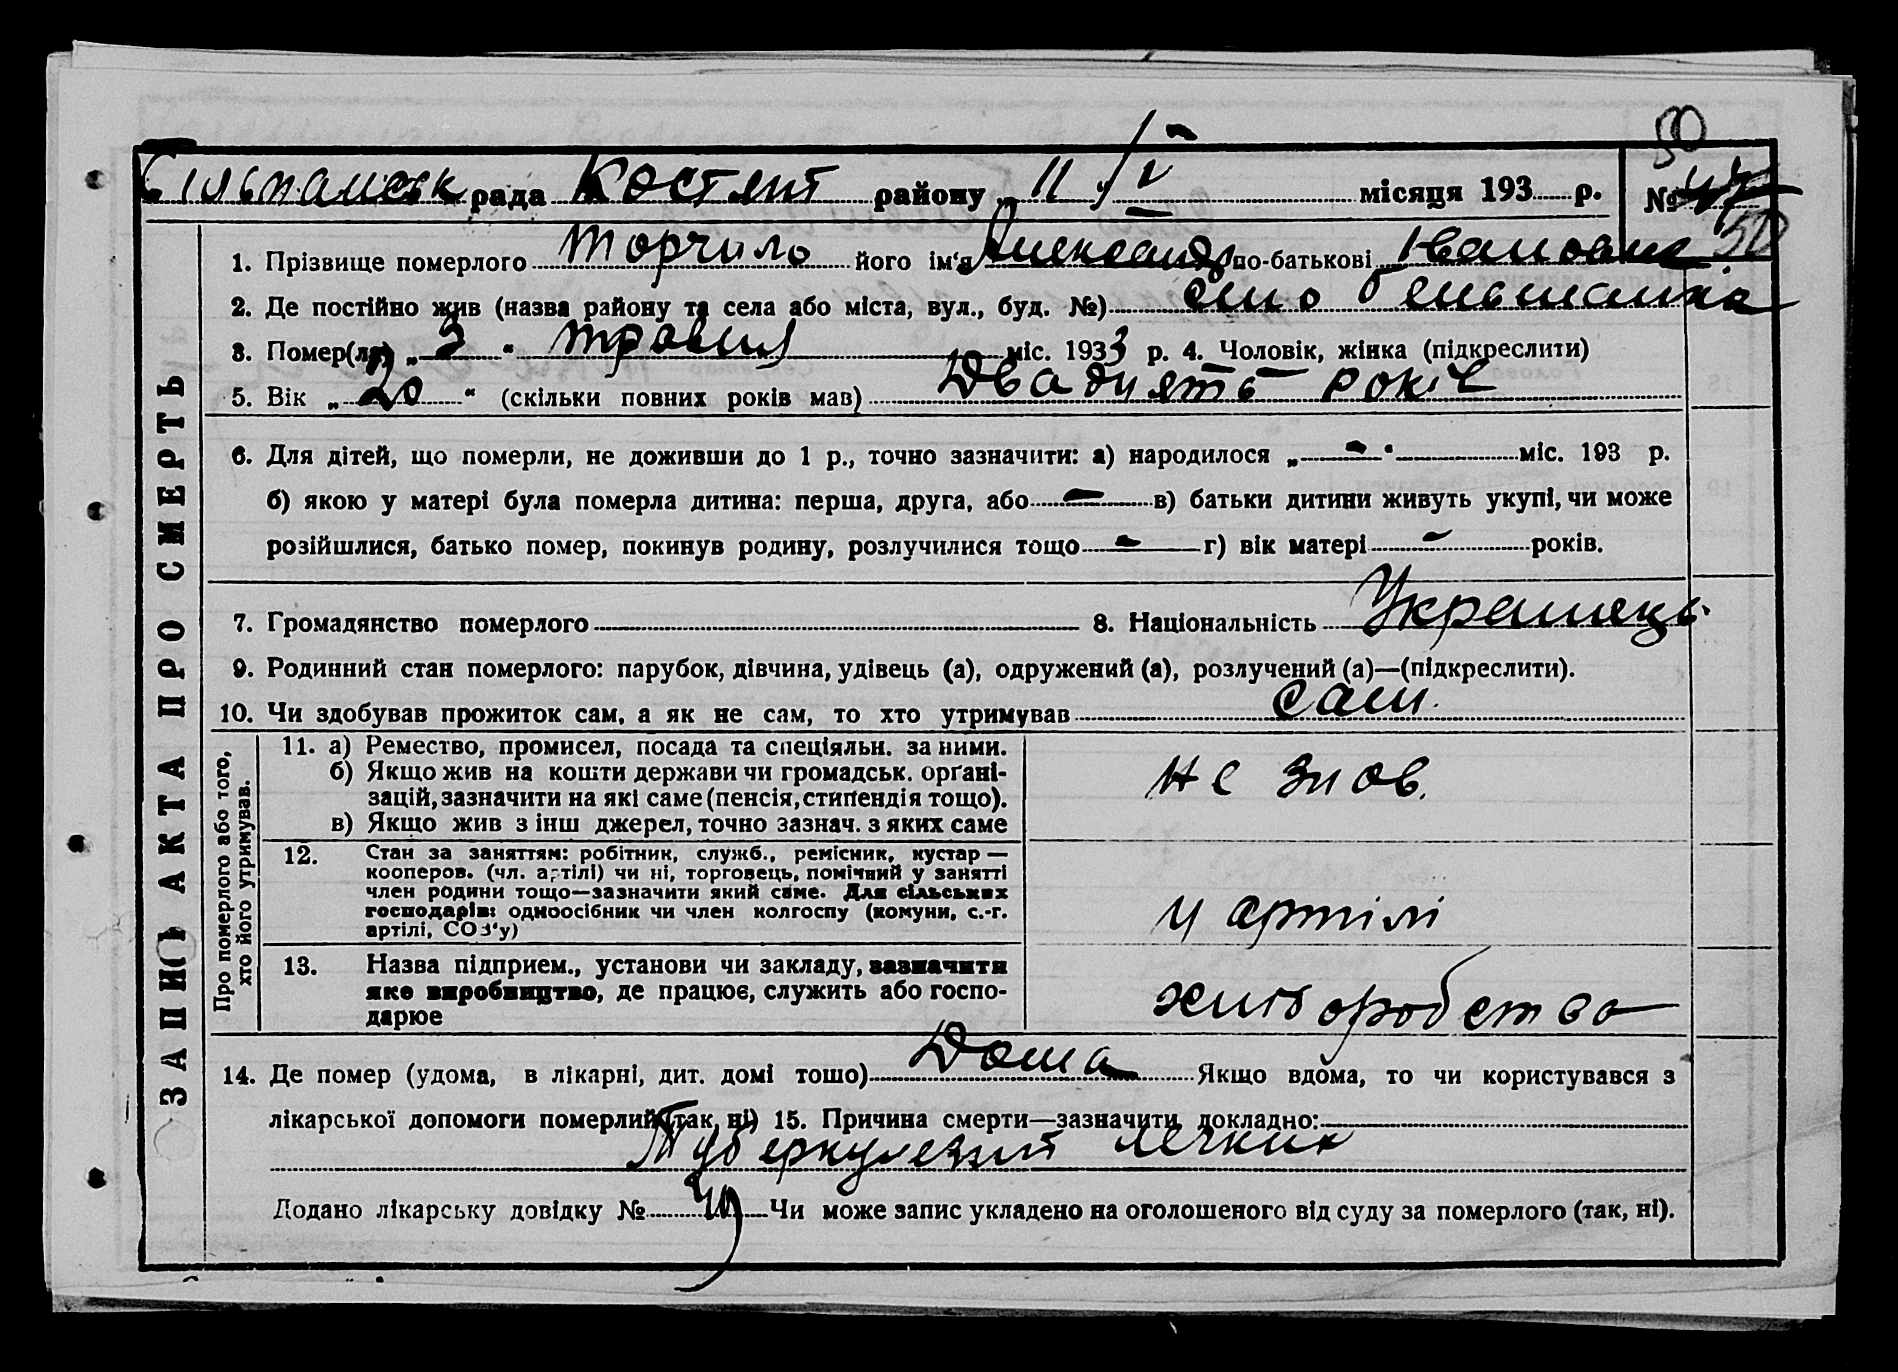 50
рада Костянт району 11/V місяця 193 р. № 47 50
1. Прізвище померлого Торчило його ім'я Александр по-батькові Іванович
2. Де постійно жив (назва району та села або міста, вул., буд. №) село
3. Помер(ла) „ 3 “ травня міс. 1933 р. 4. Чоловік, жінка (підкреслити)
5. Вік „ 20 “ (скільки повних років мав) Двадцять років
6. Для дітей, що померли, не доживши до 1 р., точно зазначити: а) народилося „ - “ міс. 193 р.
б) якою у матері була померла дитина: перша, друга, або - в) батьки дитини живуть укупі, чи може
розійшлися, батько помер, покинув родину, розлучилися тощо - г) вік матері - років.
7. Громадянство померлого 8. Національність Украинець
9. Родинний стан померлого: парубок, дівчина, удівець (а), одружений (а), розлучений (а)—(підкреслити).
10. Чи здобував прожиток сам, а як не сам, то хто утримував сам.
ЗАПИС АКТА ПРО СМЕРТЬ
Про померлого або того,
хто його утримував.
11. а) Ремество, промисел, посада та спеціяльн. за ними.
б) Якщо жив на кошти держави чи громадськ. орґані-
зацій, зазначити на які саме (пенсія, стипендія тощо).
в) Якщо жив з інш джерел, точно зазнач. з яких саме
не знов.
12. Стан за заняттям: робітник, служб., ремісник, кустар —
кооперов. (чл. артілі) чи ні, торговець, помічний у занятті
член родини тощо—зазначити який саме. Для сільських
господарів: одноосібник чи член колгоспу (комуни, с.-г.
артілі, СОЗ'у)
у артілі
13. Назва підприєм., установи чи закладу, зазначити
яке виробництво, де працює, служить або госпо-
дарює
14. Де помер (удома, в лікарні, дит. домі тощо) Дома Якщо вдома, то чи користувався з
лікарської допомоги померлий (так, ні) 15. Причина смерти—зазначити докладно:
Туберкулезий легких
Додано лікарську довідку № Чи може запис укладено на оголошеного від суду за померлого (так, ні).